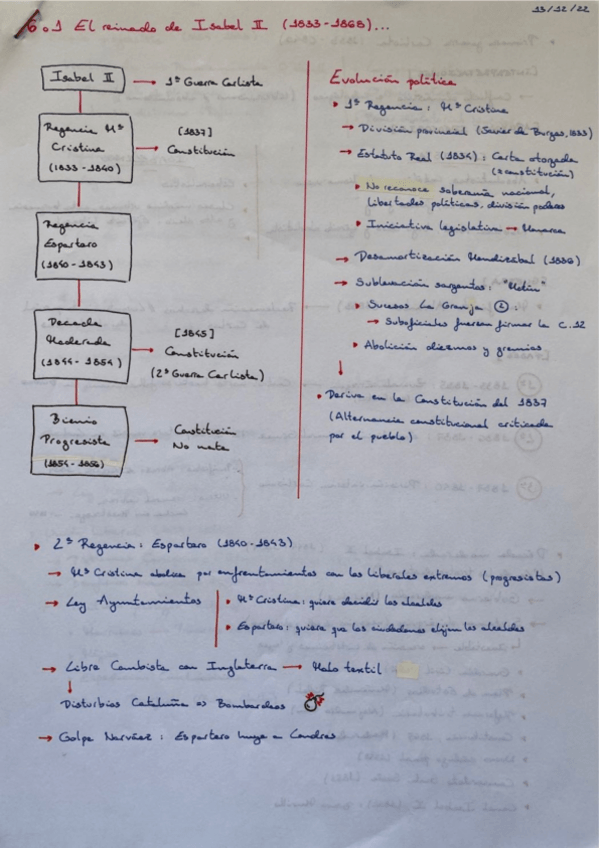 13/12/22
6.1 El reinado de Isabel II (1833-1868)...
Isabel II → 1ª Guerra Carlista
Regencia Mª
Cristina
(1833-1840)
[1837]
→ Constitución
Regencia
Espartero
(1840-1843)
Decada
Moderada
(1844-1854)
[1845]
→ Constitución
(2ª Guerra Carlista)
Bienio
Progresista
(1854-1856)
→ Constitución
No nata
Evolución política
• 1ª Regencia: Mª Cristina
→ División provincial (Javier de Burgos, 1833)
→ Estatuto Real (1834): Carta otorgada
(≠constitución)
• No reconoce soberanía nacional,
libertades políticas, división poderes
• Iniciativa legislativa → Monarca
→ Desamortización Mendizábal (1836)
→ Sublevación sargentos: "Motín"
• Sucesos La Granja :
→ Suboficiales fuerzan firmar la C.12
• Abolición diezmos y gremios
↓
• Deriva en la Constitución del 1837
(Alternancia constitucional criticada
por el pueblo)
• 2ª Regencia: Espartero (1840-1843)
→ Mª Cristina abdica por enfrentamientos con los liberales extremos (progresistas)
→ Ley Ayuntamientos
• Mª Cristina: quiere decidir los alcaldes
• Espartero: quiere que los ciudadanos elijan los alcaldes
→ Libre Cambista con Inglaterra → Malo textil
↓
Disturbios Cataluña => Bombardeos
→ Golpe Narváez: Espartero huye a Londres